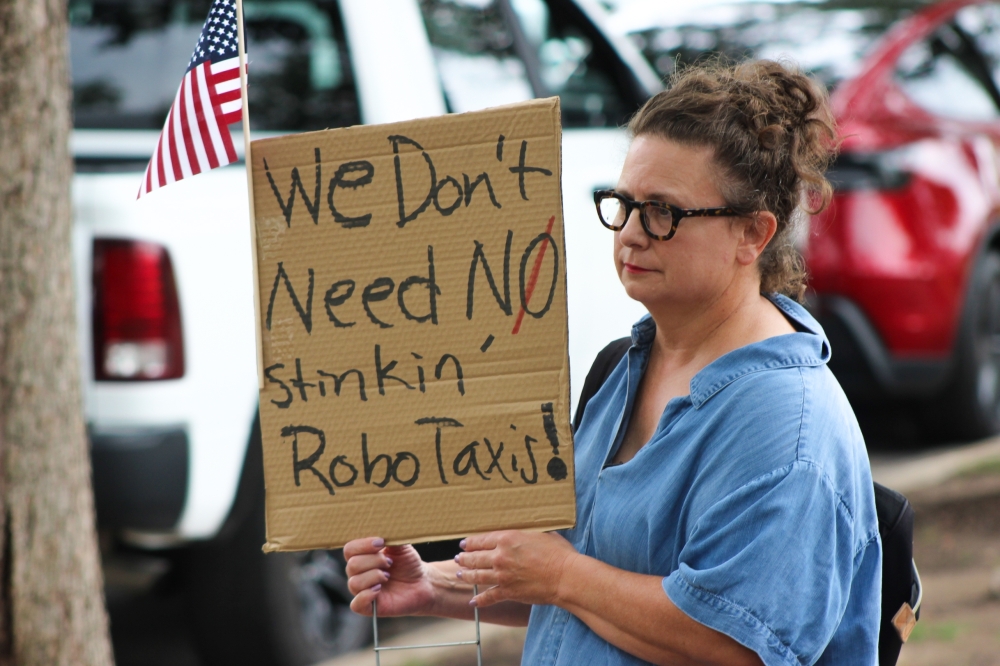 We Don't
Need NO
stinkin'
RoboTaxis!